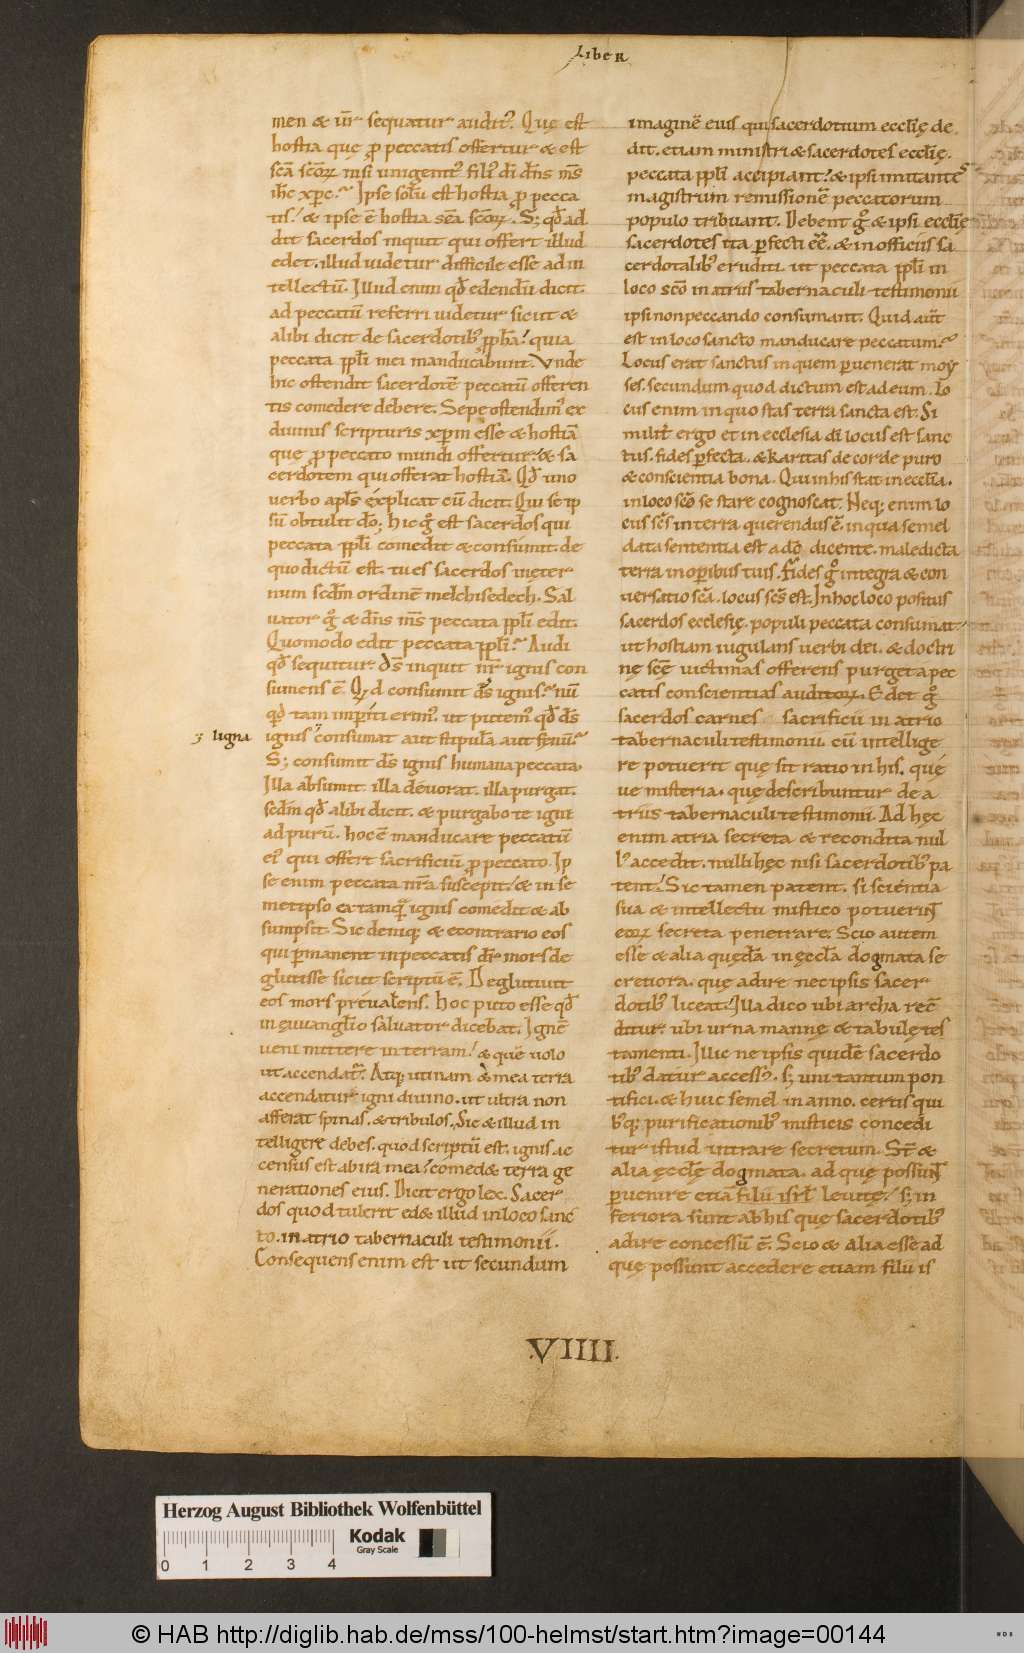 Liber
men & ur̄ sequatur audit᷒. Quę est
hostia quę ꝓ peccatis offertur & est
sc̄a sc̄oꝝ nisi unigenit᷒ fili᷒ dī dn̄s nr̄s
ih̄c xp̄c? Ipse solus est hostia ꝓ pecca
tis! & ipse ē hostia sc̄a sc̄oꝝ. S; qđ ad
dit sacerdos inquit qui offert illud
edet. illud uidetur difficile esse ad in
tellectū. Illud enim qđ edendū dicit.
ad peccatū referri uidetur sicut &
alibi dicit de sacerdotib᷒ ꝓph̄a! quia
peccata ꝓpli mei manducabunt. Vnde
hic ostendit sacerdotē peccatū offeren
tis comedere debere. Sepę ostendim᷒ ex
diuinis scripturis xp̄m esse & hostiā
quę ꝓ peccato mundi offertur. & sa
cerdotem qui offerat hostiā. Qđ uno
uerbo apl̄s explicat cū dicit. Qui sē ip
sū obtulit dō; hic g̊ est sacerdos qui
peccata ꝓpli comedit & consumit. de
quo dictū est. tu es sacerdos in eter
num scd̄m ordinē melchisedech. Sal
uator g̊ & dn̄s nr̄s peccata ꝓpli edit.
Quomodo edit peccata ꝓpli? Audi
qđ sequitur. Ds̄ inquit nr̄ ignis con
sumens ē. Quid consumit ds̄ ignis? nū
qđ tam imꝑiti erim᷒. ut putem᷒ qđ ds̄
ȝ ligna
ignis consumat aut stipulā aut fęnū?
S; consumit ds̄ ignis humana peccata.
Illa absumit. illa deuorat. illa purgat.
scd̄m qđ alibi dicit. & purgabo te igni
ad purū. hoc ē manducare peccatū
ei᷒ qui offert sacrificiū ꝓ peccato. Ip
se enim peccata nr̄a suscepit! & in se
metipso ea tamquā ignis comedit & ab
sumpsit. Sic deniq; & econtrario eos
qui ꝑmanent in peccatis dr̄ mors de
glutisse sicut scriptū ē. Deglutiuit
eos mors preualens. hoc puto esse qđ
in euuanglio saluator dicebat. Ignē
ueni mittere in terram! & quē uolo
ut accendat᷒. Atq; utinam & mea terra
accendatur igni diuino. ut ultra non
afferat spinas. & tribulos. Sic & illud in
telligere debes. quod scriptū est. ignis ac
census est ab ira mea! comed& terra ge
nerationes eius. Dicit ergo lex. Sacer
dos quod tulerit ed& illud in loco sanc
to. in atrio tabernaculi testimonii.
Consequens enim est ut secundum
imaginē eius qui sacerdotium eccl̄ię de
dit. etiam ministri & sacerdotes eccl̄ię.
peccata ꝓpli accipiant! & ipsi imitantes
magistrum remissionē peccatorum
populo tribuant. Debent g̊ & ipsi eccl̄ię
sacerdotes ita ꝑfecti eē. & in officiis sa
cerdotalib᷒ eruditi. ut peccata ꝓpli in
loco sc̄o in atriis tabernaculi testimonii
ipsi non peccando consumant. Quid aūt
est in loco sancto manducare peccatum?
Locus erat sanctus in quem ꝑuenerat moy
ses. secundum quod dictum est ad eum. lo
cus enim in quo stas terra sancta est. Si
milit̄ ergo et in ecclesia dī locus est sanc
tus. fides ꝑfecta. & karitas de corde puro
& conscientia bona. Qui in his stat in eccl̄ia.
in loco sc̄o se stare cognoscat. Neq; enim lo
cus sc̄s in terra querendus ē. in qua semel
data sententia est a dō dicente. maledicta
terra in oꝑibus tuis. Fides g̊ integra & con
uersatio sc̄a. locus sc̄s est. In hoc loco positus
sacerdos ecclesię. populi peccata consumat.
ut hostiam iugulans uerbi dei. & doctri
nę sc̄ę uictimas offerens purget a pec
catis conscientias auditoꝝ. Edet g̊
sacerdos carnes sacrificii in atrio
tabernaculi testimonii. cū intellige
re potuerit quę sit ratio in his. quę
ue misteria. quę describuntur de a
triis tabernaculi testimonii. Ad hęc
enim atria secreta & recondita nul
l᷒ accedit. nulli hęc nisi sacerdotib᷒ pa
tent! Sic tamen patent. si scientia
sua & intellectu mistico potuerint
eoꝝ secreta penetrare. Scio autem
esse & alia quędā in ęccl̄a dogmata se
cretiora. quę adire nec ipsis sacer
dotib᷒ liceat! Illa dico ubi archa rec̄
ditur ubi urna mannę & tabulę tes
tamenti. Illic ne ipsis quidē sacerdo
tib᷒ datur access᷒. s; uni tantum pon
tifici. & huic semel in anno. certis qui
b᷒q; purificationib᷒ misticis concedi
tur istud intrare secretum. St̄ &
alia ęccl̄ę dogmata. ad quę possint
ꝑuenire etiā filii isrl̄ leuitę! s; in
feriora sunt ab his quę sacerdotib᷒
adire concessū ē. Scio & alia esse ad
quę possunt accedere etiam filii is
.VIIII.
Herzog August Bibliothek Wolfenbüttel
Kodak
Gray Scale
0 1 2 3 4
© HAB http://diglib.hab.de/mss/100-helmst/start.htm?image=00144